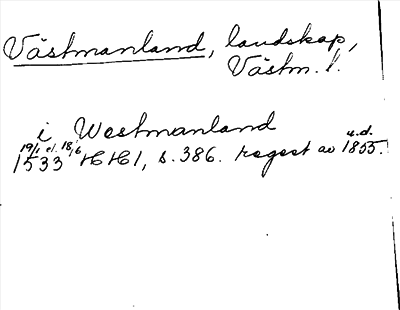 Västmanland, landskap,
Västm. l.
i Westmanland
19/1 el. 18/6 u.d.
1533 HH1, s. 386. regest av 1855.